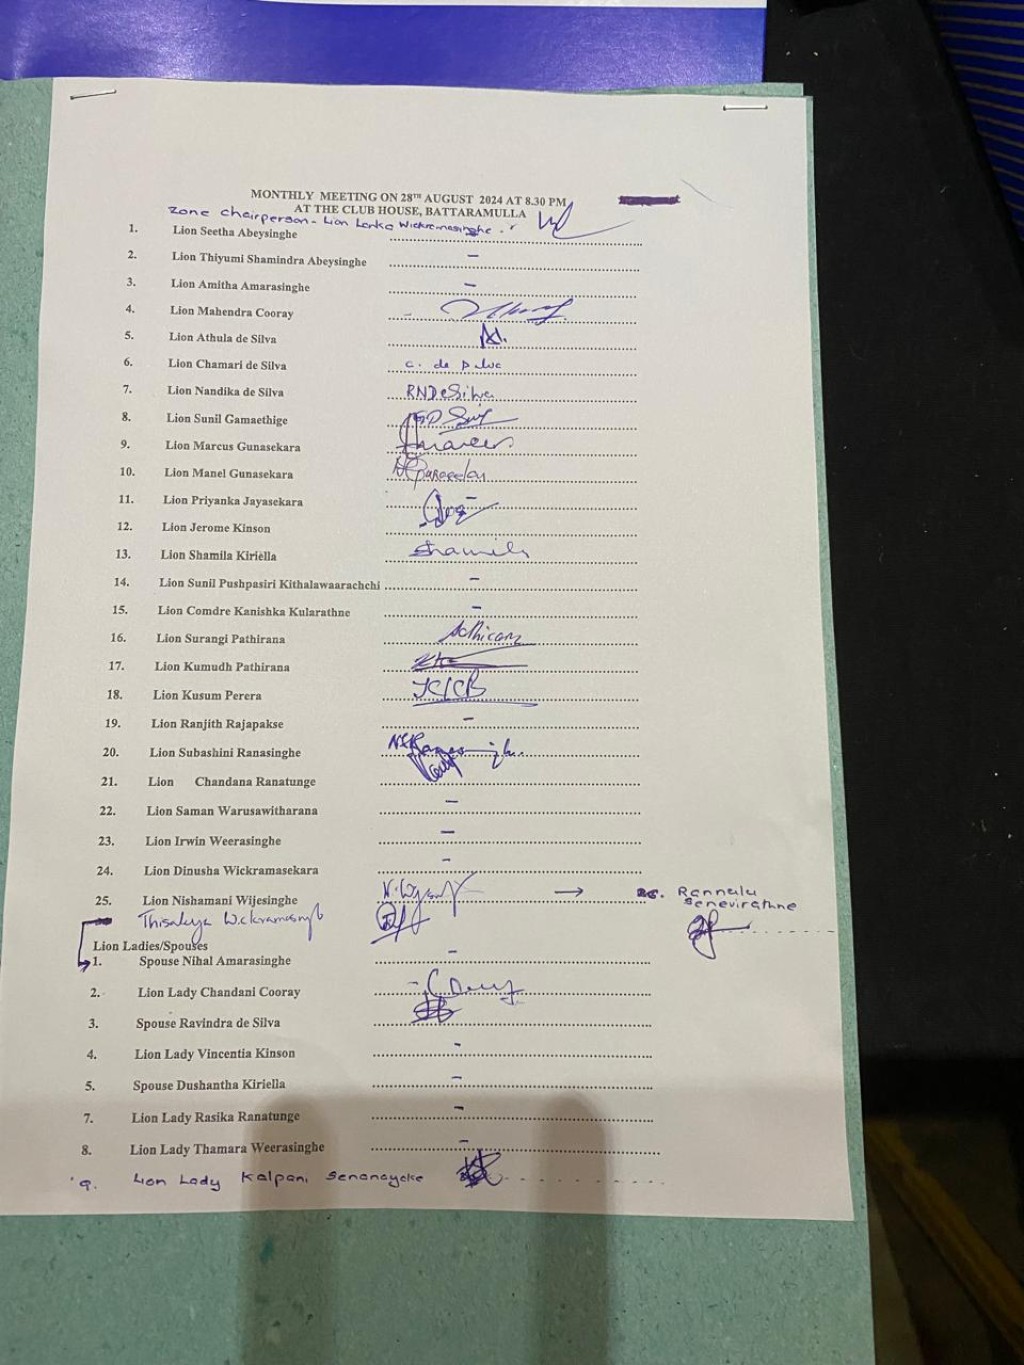 MONTHLY MEETING ON 28TH AUGUST 2024 AT 8.30 PM
AT THE CLUB HOUSE, BATTARAMULLA
Zone Chairperson - Lion Lanka Wickramasinghe.
1. Lion Seetha Abeysinghe
2. Lion Thiyumi Shamindra Abeysinghe -
3. Lion Amitha Amarasinghe -
4. Lion Mahendra Cooray
5. Lion Athula de Silva
6. Lion Chamari de Silva
7. Lion Nandika de Silva RNDeSilva
8. Lion Sunil Gamaethige
9. Lion Marcus Gunasekara
10. Lion Manel Gunasekara
11. Lion Priyanka Jayasekara
12. Lion Jerome Kinson
13. Lion Shamila Kiriella Shamila
14. Lion Sunil Pushpasiri Kithalawaarachchi -
15. Lion Comdre Kanishka Kularathne -
16. Lion Surangi Pathirana
17. Lion Kumudh Pathirana
18. Lion Kusum Perera
19. Lion Ranjith Rajapakse -
20. Lion Subashini Ranasinghe
21. Lion Chandana Ranatunge
22. Lion Saman Warusawitharana -
23. Lion Irwin Weerasinghe -
24. Lion Dinusha Wickramasekara -
25. Lion Nishamani Wijesinghe → 26. Rannalu
Senevirathne
Thisakya Wickramasinghe
Lion Ladies/Spouses
1. Spouse Nihal Amarasinghe -
2. Lion Lady Chandani Cooray
3. Spouse Ravindra de Silva
4. Lion Lady Vincentia Kinson -
5. Spouse Dushantha Kiriella -
7. Lion Lady Rasika Ranatunge -
8. Lion Lady Thamara Weerasinghe -
9. Lion Lady Kalpani Senanayake